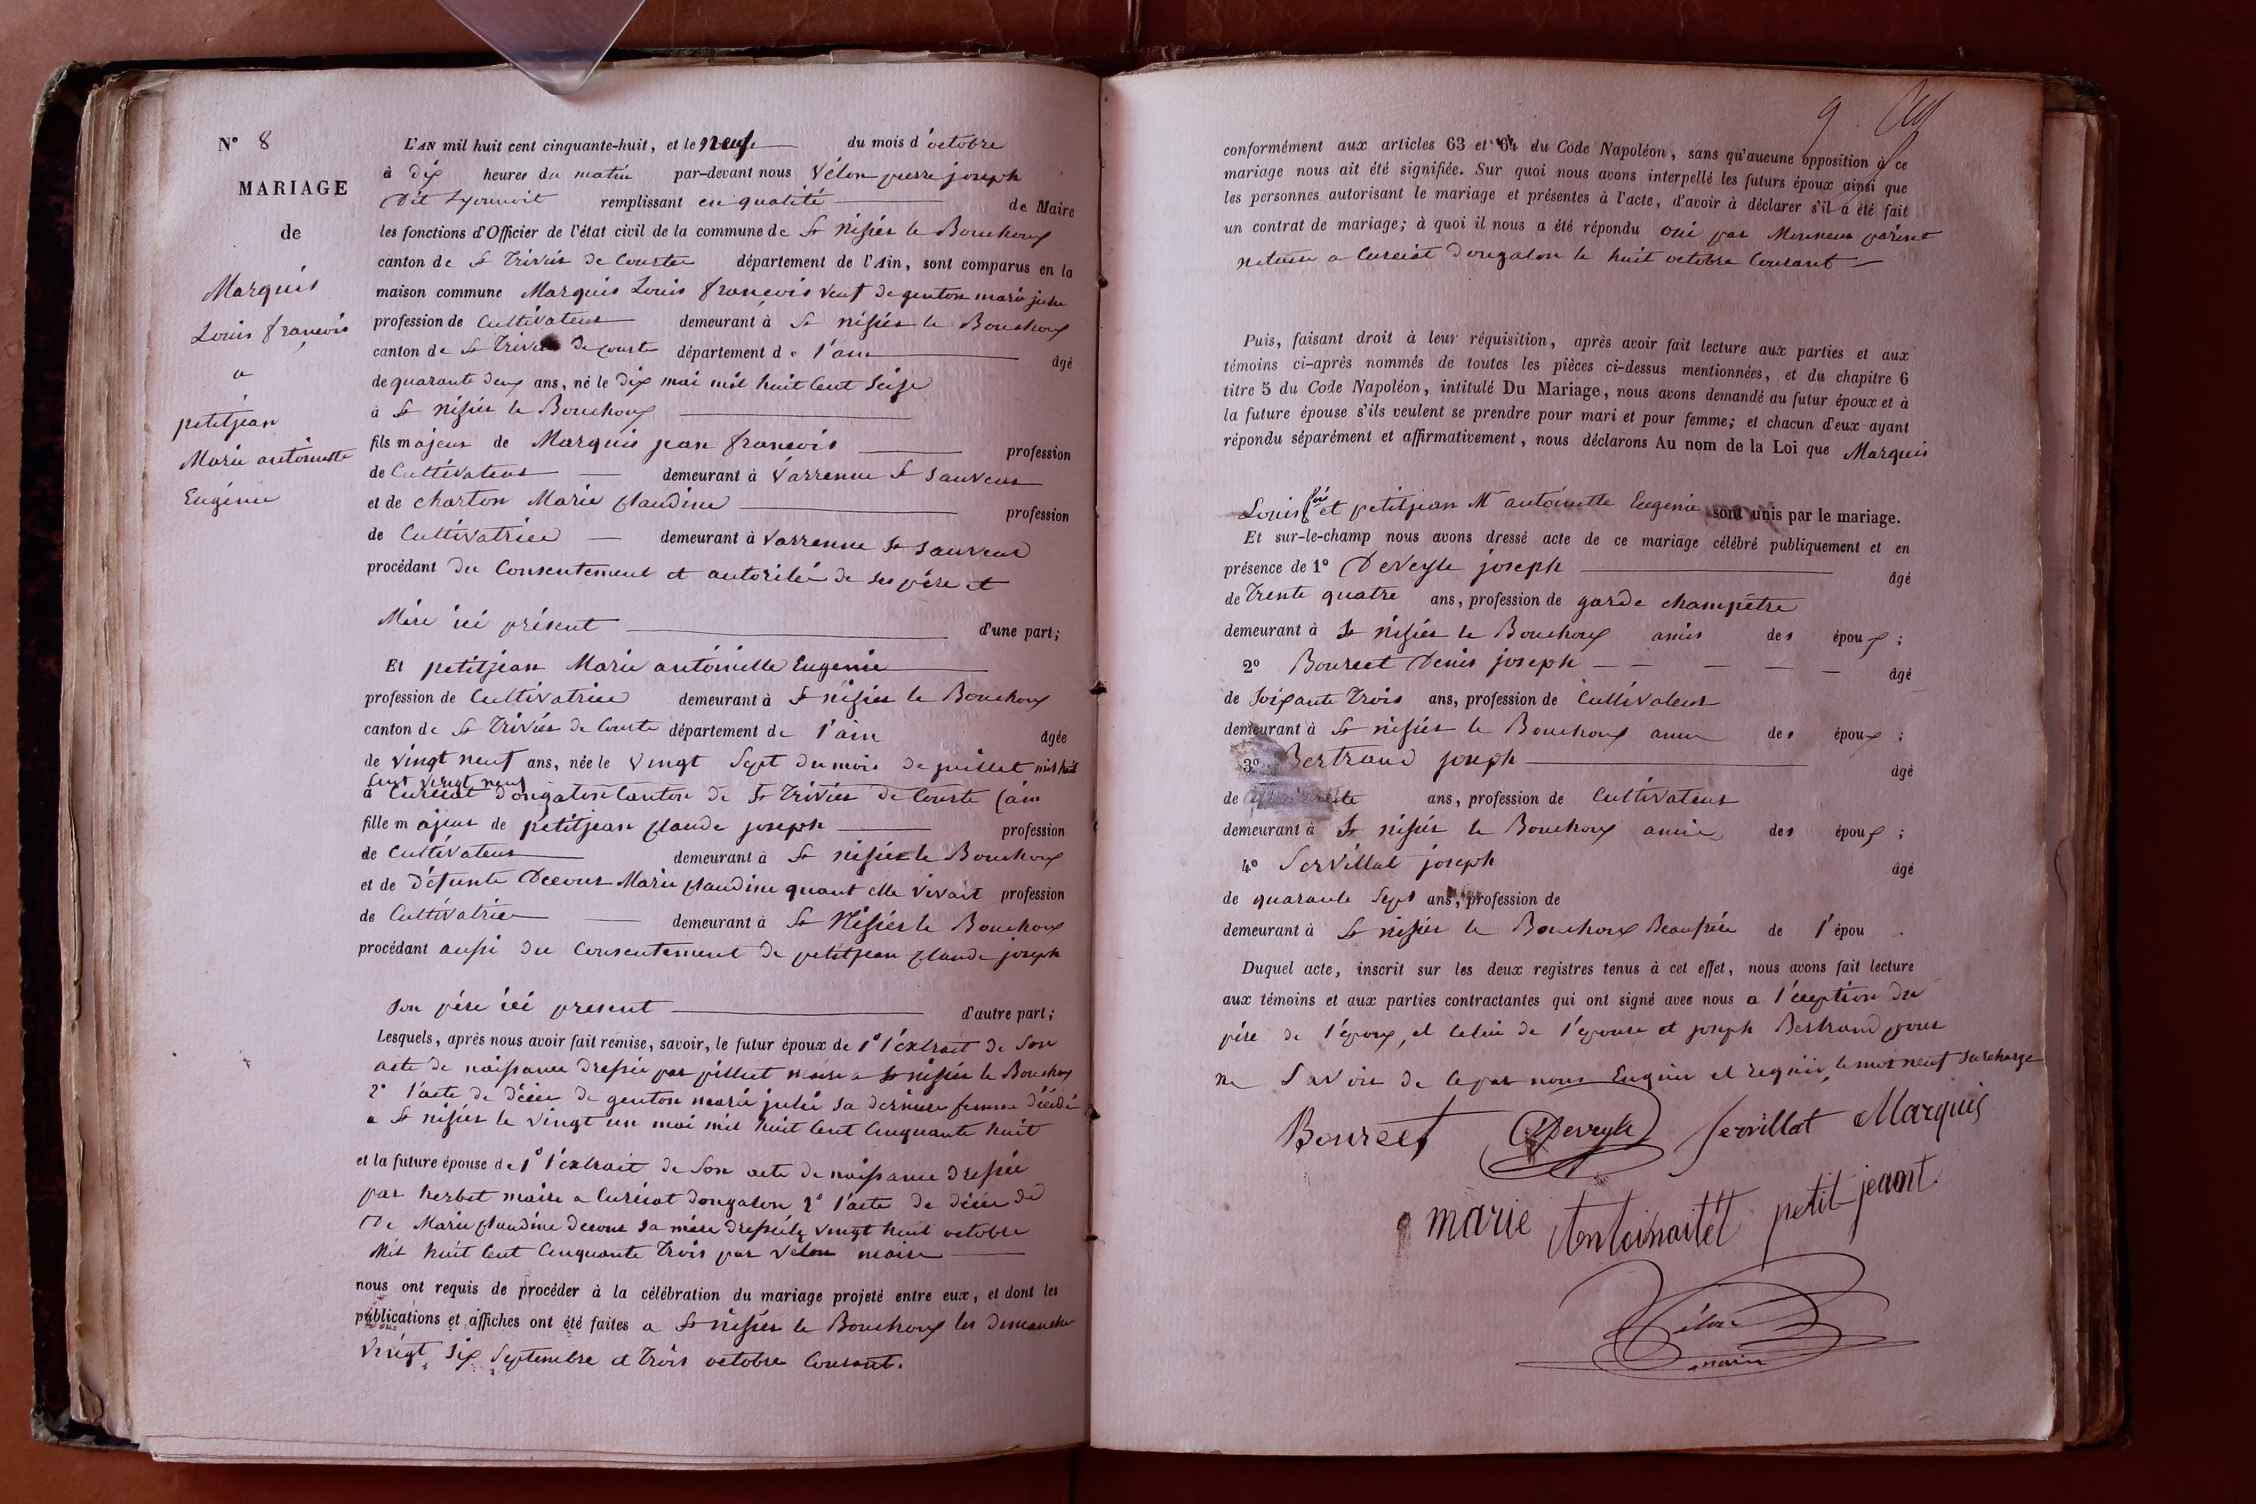 N° 8
MARIAGE
de
Marquis
Louis françois
a
petitjean
Marie antoinette
Eugénie
L'AN mil huit cent cinquante-huit, et le neuf du mois d'octobre
à dix heures du matin par-devant nous Vélon pierre joseph
Dit remplissant en qualité de Maire
les fonctions d'Officier de l'état civil de la commune de St nisier le Bouchoux
canton de St Trivier de Courtes département de l'Ain, sont comparus en la
maison commune Marquis Louis françois veuf de genton marie julie
profession de Cultivateur demeurant à St nisier le Bouchoux
canton de St Trivier de Courte département de l'ain âgé
de quarante deux ans, né le dix mai mil huit Cent Seize
à St nisier le Bouchoux
fils majeur de Marquis jean francois profession
de Cultivateur demeurant à Varrenne St Sauveur
et de Charton Marie Claudine profession
de Cultivatrice demeurant à Varrenne St Sauveur
procédant du Consentement et autorité de ses père et
Mère ici présent d'une part;
Et petitjean Marie antoinette Eugenie
profession de Cultivatrice demeurant à St nisier le Bouchoux
canton de St Trivier de Courte département de l'ain âgée
de vingt neuf ans, née le vingt Sept du mois de juillet mil huit
Cent vingt neuf
à Curciat dongalon Canton de St Trivier de Courte (ain
fille majeur de petitjean Claude joseph profession
de Cultivateur demeurant à St nisier le Bouchoux
et de Défunte Decour Marie Claudine quant elle vivait profession
de Cultivatrice demeurant à St Nisier le Bouchoux
procédant aussi du Consentement de petitjean Claude joseph
Son père ici present d'autre part;
Lesquels, après nous avoir fait remise, savoir, le futur époux de 1° l'extrait de Son
acte de naissance dressée par pilliet maire a St nisier le Bouchoux
2° l'acte de décès de genton marie julie sa derniere femme décédé
a St nisier le vingt un mai mil huit Cent Cinquante huit
et la future épouse de 1° l'extrait de Son acte de naissance dressée
par herbet maire a Curciat dongalon 2° l'acte de décès de
De Marie Claudine decour sa mère dressée le vingt huit octobre
Mil huit Cent Cinquante Trois par Vélon maire
nous ont requis de procéder à la célébration du mariage projeté entre eux, et dont les
publications et affiches ont été faites a St nisier le Bouchoux les dimanche
Vingt Six Septembre et Trois octobre Courant.
conformément aux articles 63 et 64 du Code Napoléon, sans qu'aucune opposition à ce
mariage nous ait été signifiée. Sur quoi nous avons interpellé les futurs époux ainsi que
les personnes autorisant le mariage et présentes à l'acte, d'avoir à déclarer s'il a été fait
un contrat de mariage; à quoi il nous a été répondu oui par Monsieur
notaire a Curciat Dongalon le huit octobre Courant
Puis, faisant droit à leur réquisition, après avoir fait lecture aux parties et aux
témoins ci-après nommés de toutes les pièces ci-dessus mentionnées, et du chapitre 6
titre 5 du Code Napoléon, intitulé Du Mariage, nous avons demandé au futur époux et à
la future épouse s'ils veulent se prendre pour mari et pour femme; et chacun d'eux ayant
répondu séparément et affirmativement, nous déclarons Au nom de la Loi que Marquis
Louis fois et petitjean Me antoinette Eugénie sont unis par le mariage.
Et sur-le-champ nous avons dressé acte de ce mariage célébré publiquement et en
présence de 1° Deveyle joseph âgé
de Trente quatre ans, profession de garde champêtre
demeurant à St nisier le Bouchoux amis des époux;
2° Bourcet Denis joseph âgé
de Soixante Trois ans, profession de Cultivateur
demeurant à St nisier le Bouchoux amis des époux;
3° Bertrand joseph âgé
de ans, profession de Cultivateur
demeurant à St nisier le Bouchoux amie des époux;
4° Servillat joseph âgé
de quarante Sept ans, profession de
demeurant à St nisier le Bouchoux Beaufrére de l'épou
Duquel acte, inscrit sur les deux registres tenus à cet effet, nous avons fait lecture
aux témoins et aux parties contractantes qui ont signé avec nous a l'éception du
père de l'époux, et celui de l'épouse et joseph Bertrand pour
ne Savoir de ce par nous Enquis et requis, le mot neuf surcharge
Bourcet Deveyle Servillat Marquis
marie Antoinaitet petit jeant
Vélon
maire